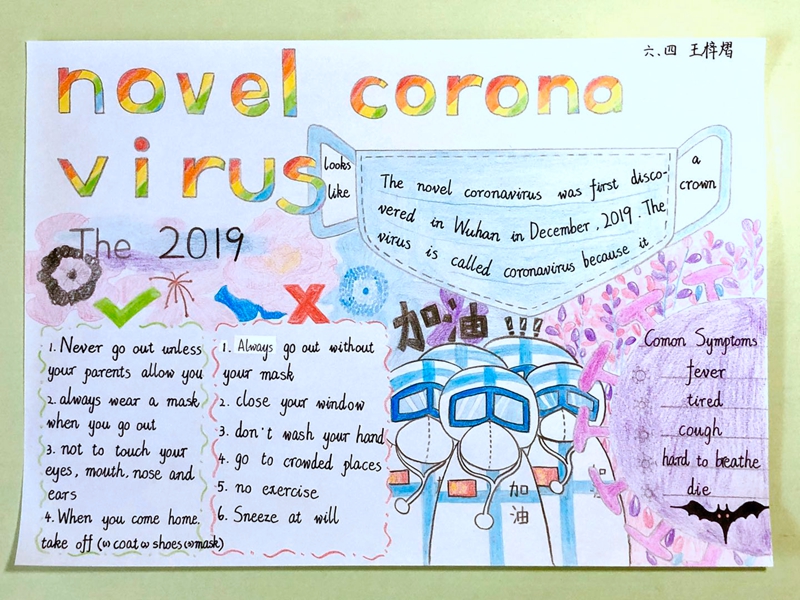 六、四 王梓熠
novel corona
virus
The 2019
looks
like
The novel coronavirus was first disco-
vered in Wuhan in December, 2019. The
virus is called coronavirus because it
a
crown
加油!!!
1. Never go out unless
your parents allow you
2. always wear a mask
when you go out
3. not to touch your
eyes, mouth, nose and
ears
4. When you come home.
take off (ω coat ω shoes (ω mask)
1. Always go out without
your mask
2. close your window
3. don't wash your hand
4. go to crowded places
5. no exercise
6. Sneeze at will
加
油
Comon Symptoms
fever
tired
cough
hard to breathe
die